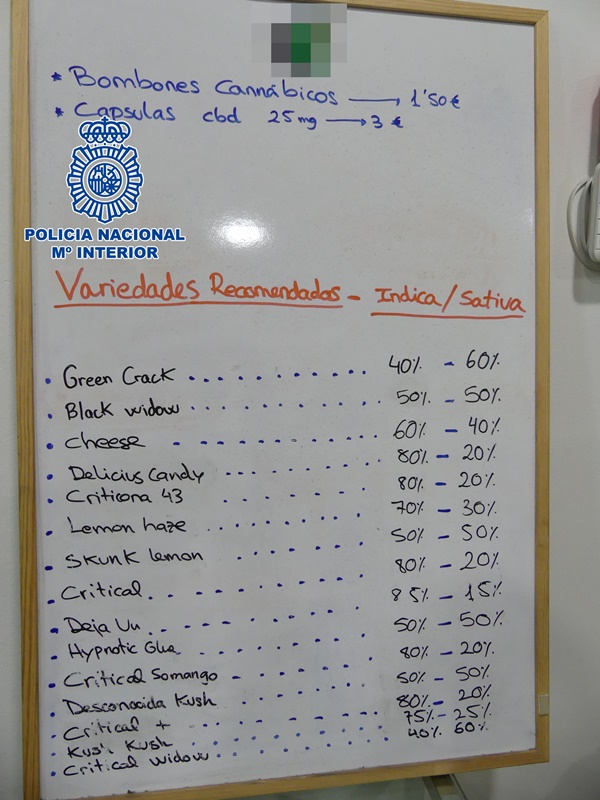 * Bombones Cannábicos → 1'50€
* Capsulas cbd 25mg → 3 €
POLICIA NACIONAL
Mº INTERIOR
Variedades Recomendadas - Indica / Sativa
• Green Crack .......... 40% - 60%
• Black widow .......... 50% - 50%
• cheese .......... 60% - 40%
• Delicius Candy .......... 80% - 20%
• Criticona 43 .......... 80% - 20%
• Lemon haze .......... 70% - 30%
• Skunk lemon .......... 50% - 50%
• Critical .......... 80% - 20%
• Deja Vu .......... 85% - 15%
• Hypnotic Glue .......... 50% - 50%
• Critical Somango .......... 80% - 20%
• Desconocida Kush .......... 50% - 50%
• Critical + .......... 80% - 20%
• Kush Kush .......... 75% - 25%
• Critical widow .......... 40% 60%